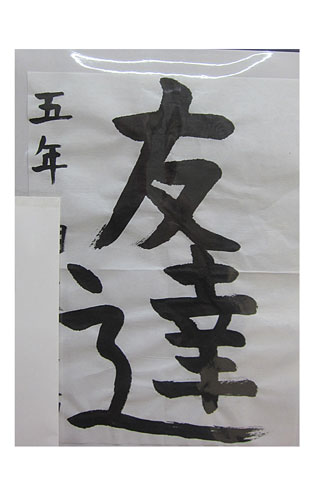 友達
五年